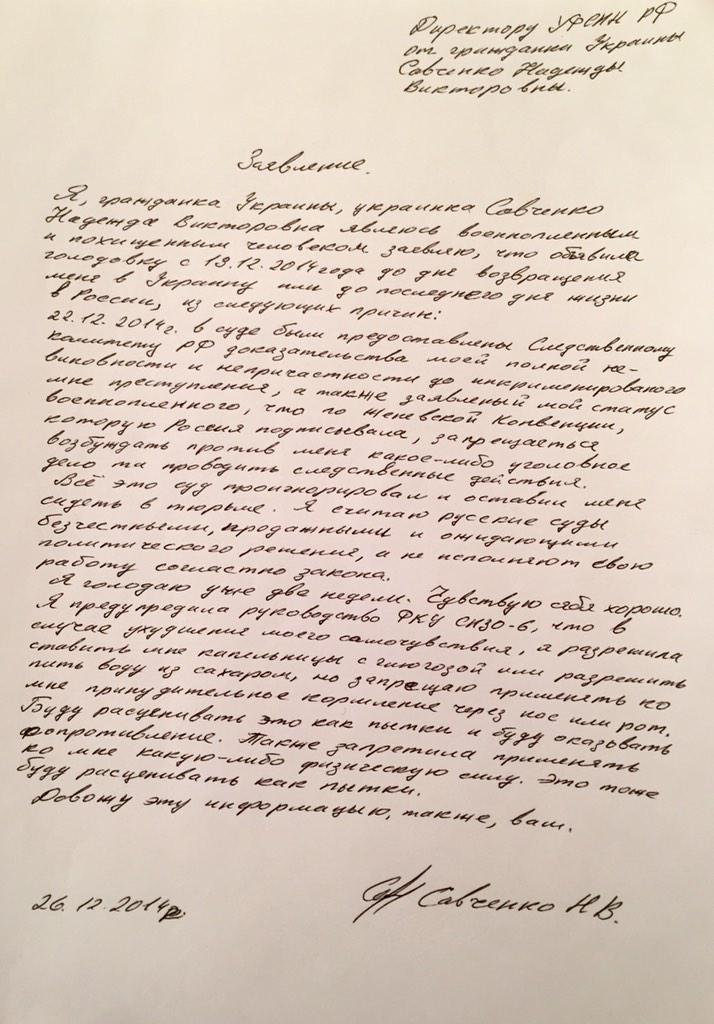 Директору УФСИН РФ
от гражданки Украины
Савченко Надежды
Викторовны.
Заявление.
Я, гражданка Украины, украинка Савченко
Надежда Викторовна являюсь военнопленным
и похищенным человеком заявляю, что объявила
голодовку с 13.12.2014 года до дня возвращения
меня в Украину или до последнего дня жизни
в России, из следующих причин:
22.12.2014г. в суде были предоставлены Следственному
комитету РФ доказательства моей полной не-
виновности и непричастности до инкриминированого
мне преступления, а также заявленый мой статус
военнопленного, что по Женевской Конвенции,
которую Россия подписывала, запрещаеться
возбуждать против меня какое-либо уголовное
дело та проводить следственные действия.
Всё это суд проигнорировал и оставил меня
сидеть в тюрьме. Я считаю русские суды
безчестными, продажными и ожидающими
политического решения, а не исполняют свою
работу согласно закона.
Я голодаю уже две недели. Чувствую себя хорошо.
Я предупредила руководство ФКУ СИЗО-6, что в
случае ухудшения моего самочувствия, я разрешила
ставить мне капельницы с глюкозой или разрешить
пить воду из сахаром, но запрещаю применять ко
мне принудительное кормление через нос или рот.
Буду расценивать это как пытки и буду оказывать
сопротивление. Также запретила применять
ко мне какую-либо физическую силу. Это тоже
буду расценивать как пытки.
Довожу эту информацыю, также, вам.
26.12.2014г. Савченко Н В.